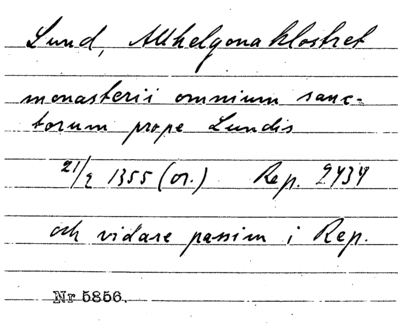 Lund, Allhelgonaklostret
monasterii omnium sanc-
torum prope Lundis
21/2 1355 (or.) Rep. 2434
och vidare passim i Rep.
Nr 5856.